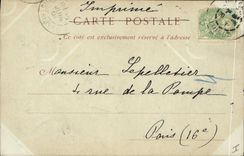 Imprimé
CARTE POSTALE
Ce côté est exclusivement réservé à l'adresse
Monsieur Lepelletier
4 rue de la Pompe
Paris (16e)